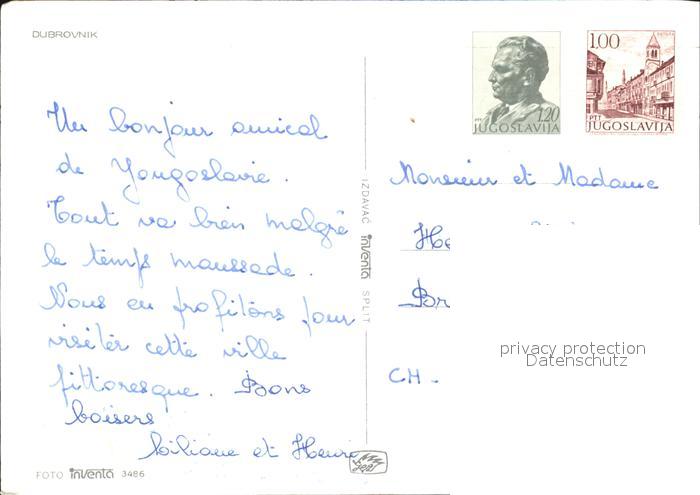 DUBROVNIK
Un bonjour amical
de Yougoslavie.
Tout va bien malgré
le temps maussade.
Nous en profitons pour
visiter cette ville
pittoresque. Bons
baisers
Liliane et Henri
FOTO inventa 3486
IZDAVAČ inventa SPLIT
PTT 1.20
JUGOSLAVIJA
1.00
PTT
JUGOSLAVIJA
Monsieur et Madame
He
Br
privacy protection
Datenschutz
CH -